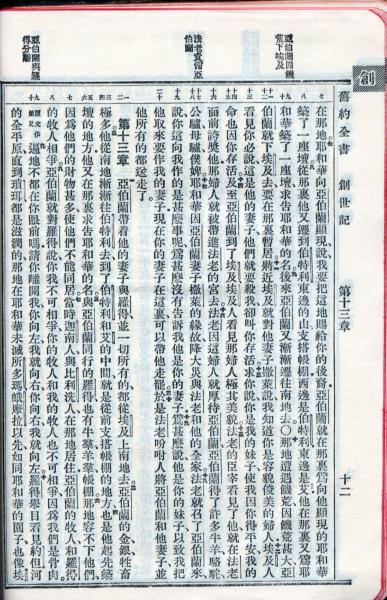 亞伯蘭因饑
荒下埃及
亞伯蘭與羅
得分離
創
舊約全書 創世記 第十三章 十二
在那地耶和華向亞伯蘭顯現說我要把這地賜給你的後裔亞伯蘭就在那裏爲向他顯現的耶和華
築了一座壇從那裏他又遷到伯特利東邊的山支搭帳棚西邊是伯特利東邊是艾他在那裏又爲耶
和華築了一座壇求告耶和華的名後來亞伯蘭又漸漸遷往南地去○那地遭遇饑荒因饑荒甚大亞
伯蘭就下埃及去要在那裏暫居將近埃及就對他妻子撒萊說我知道你是容貌俊美的婦人埃及人
看見你必說這是他的妻子他們就要殺我卻叫你存活求你說你是我的妹子使我因你得平安我的
命也因你存活及至亞伯蘭到了埃及埃及人看見那婦人極其美貌法老的臣宰看見了他就在法老
面前誇獎他那婦人就被帶進法老的宮去法老因這婦人就厚待亞伯蘭亞伯蘭得了許多牛羊駱駝
公驢母驢僕婢耶和華因亞伯蘭妻子撒萊的緣故降大災與法老和他的全家法老就召了亞伯蘭來
說你這向我作的是甚麼事呢爲甚麼沒有告訴我他是你的妻子爲甚麼說他是你的妹子以致我把
他取來要作我的妻子現在你的妻子在這裏可以帶他走罷於是法老吩咐人將亞伯蘭和他妻子並
他所有的都送走了
第十三章 亞伯蘭帶着他的妻子與羅得並一切所有的都從埃及上南地去亞伯蘭的金銀牲畜
極多他從南地漸漸往伯特利去到了伯特利和艾的中間就是從前支搭帳棚的地方也是他起先築
壇的地方他又在那裏求告耶和華的名與亞伯蘭同行的羅得也有牛羣羊羣帳棚那地容不下他們
因爲他們的財物甚多使他們不能同居當時迦南人與比利洗人在那地居住亞伯蘭的牧人和羅得
的牧人相爭亞伯蘭就對羅得說你我不可相爭你的牧人和我的牧人也不可相爭因爲我們是骨肉
原文作弟兄 遍地不都在你眼前嗎請你離開我你向左我就向右你向右我就向左羅得舉目看見約但河
的全平原直到瑣珥都是滋潤的那地在耶和華未滅所多瑪蛾摩拉以先如同耶和華的園子也像埃